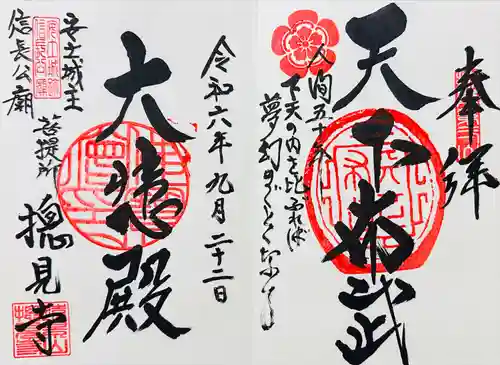 奉拝
天下布武
人間五十年
下天の内を比ぶれば
夢幻のごとくなり
令和六年九月二十二日
大悲殿
安土城主
信長公廟
菩提所
摠見寺